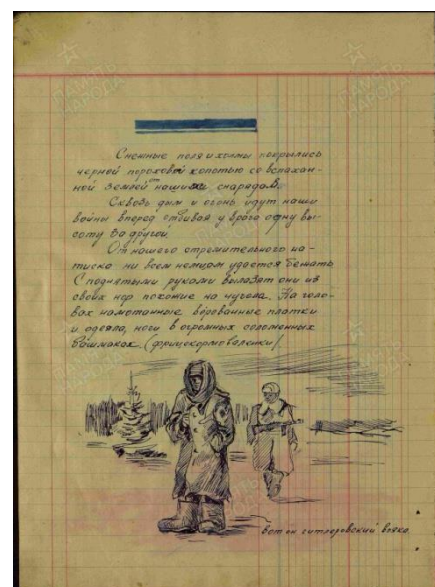 Снежные поля и холмы покрылись
черной пороховой копотью со вспахан-
ной землей нашими снарядами.
Сквозь дым и огонь идут наши
войны вперед отбивая у врага одну вы-
соту за другой.
От нашего стремительного на-
тиска ни всем немцам удается бежать.
С поднятыми руками вылазят они из
своих нор похожие на чучела. На голо-
вах намотанные ворованные платки
и одеяла, ноги в огромных соломенных
башмаках. (фрицекормоваленки)
вот он гитлеровский вояка.
ПАМЯТЬ
НАРОДА